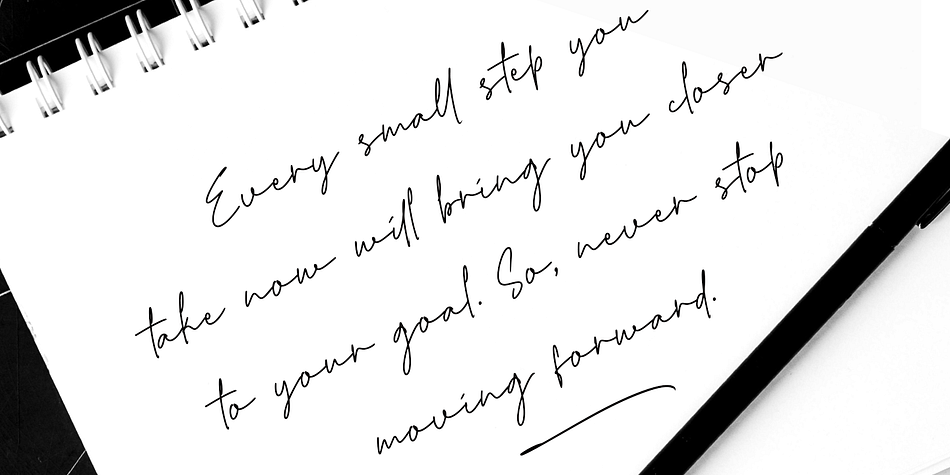 Every small step you
take now will bring you closer
to your goal. So, never stop
moving forward.